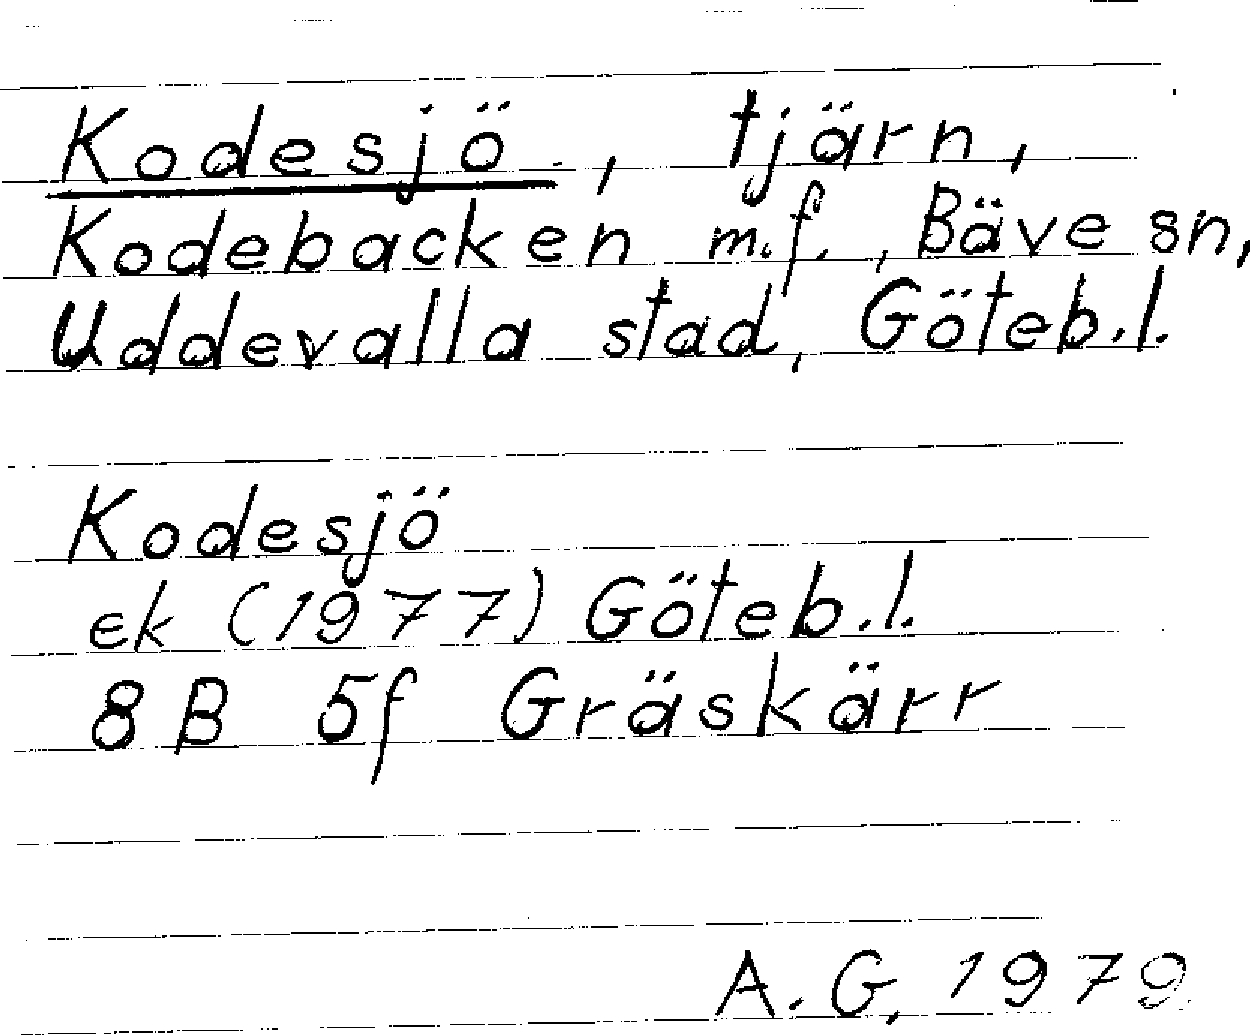 Kodesjö, tjärn,
Kodebacken m.f., Bäve sn,
Uddevalla stad, Göteb.l.
Kodesjö
ek (1977) Göteb.l.
8B 5f Gräskärr
A.G. 1979